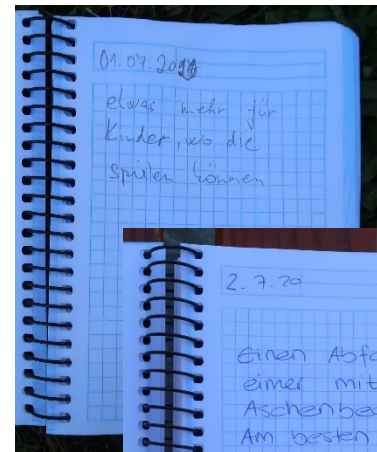 01.07.2020
etwas mehr für
Kinder, wo die
spielen können
2.7.20
Einen Abfa
eimer mit
Aschenbec
Am besten